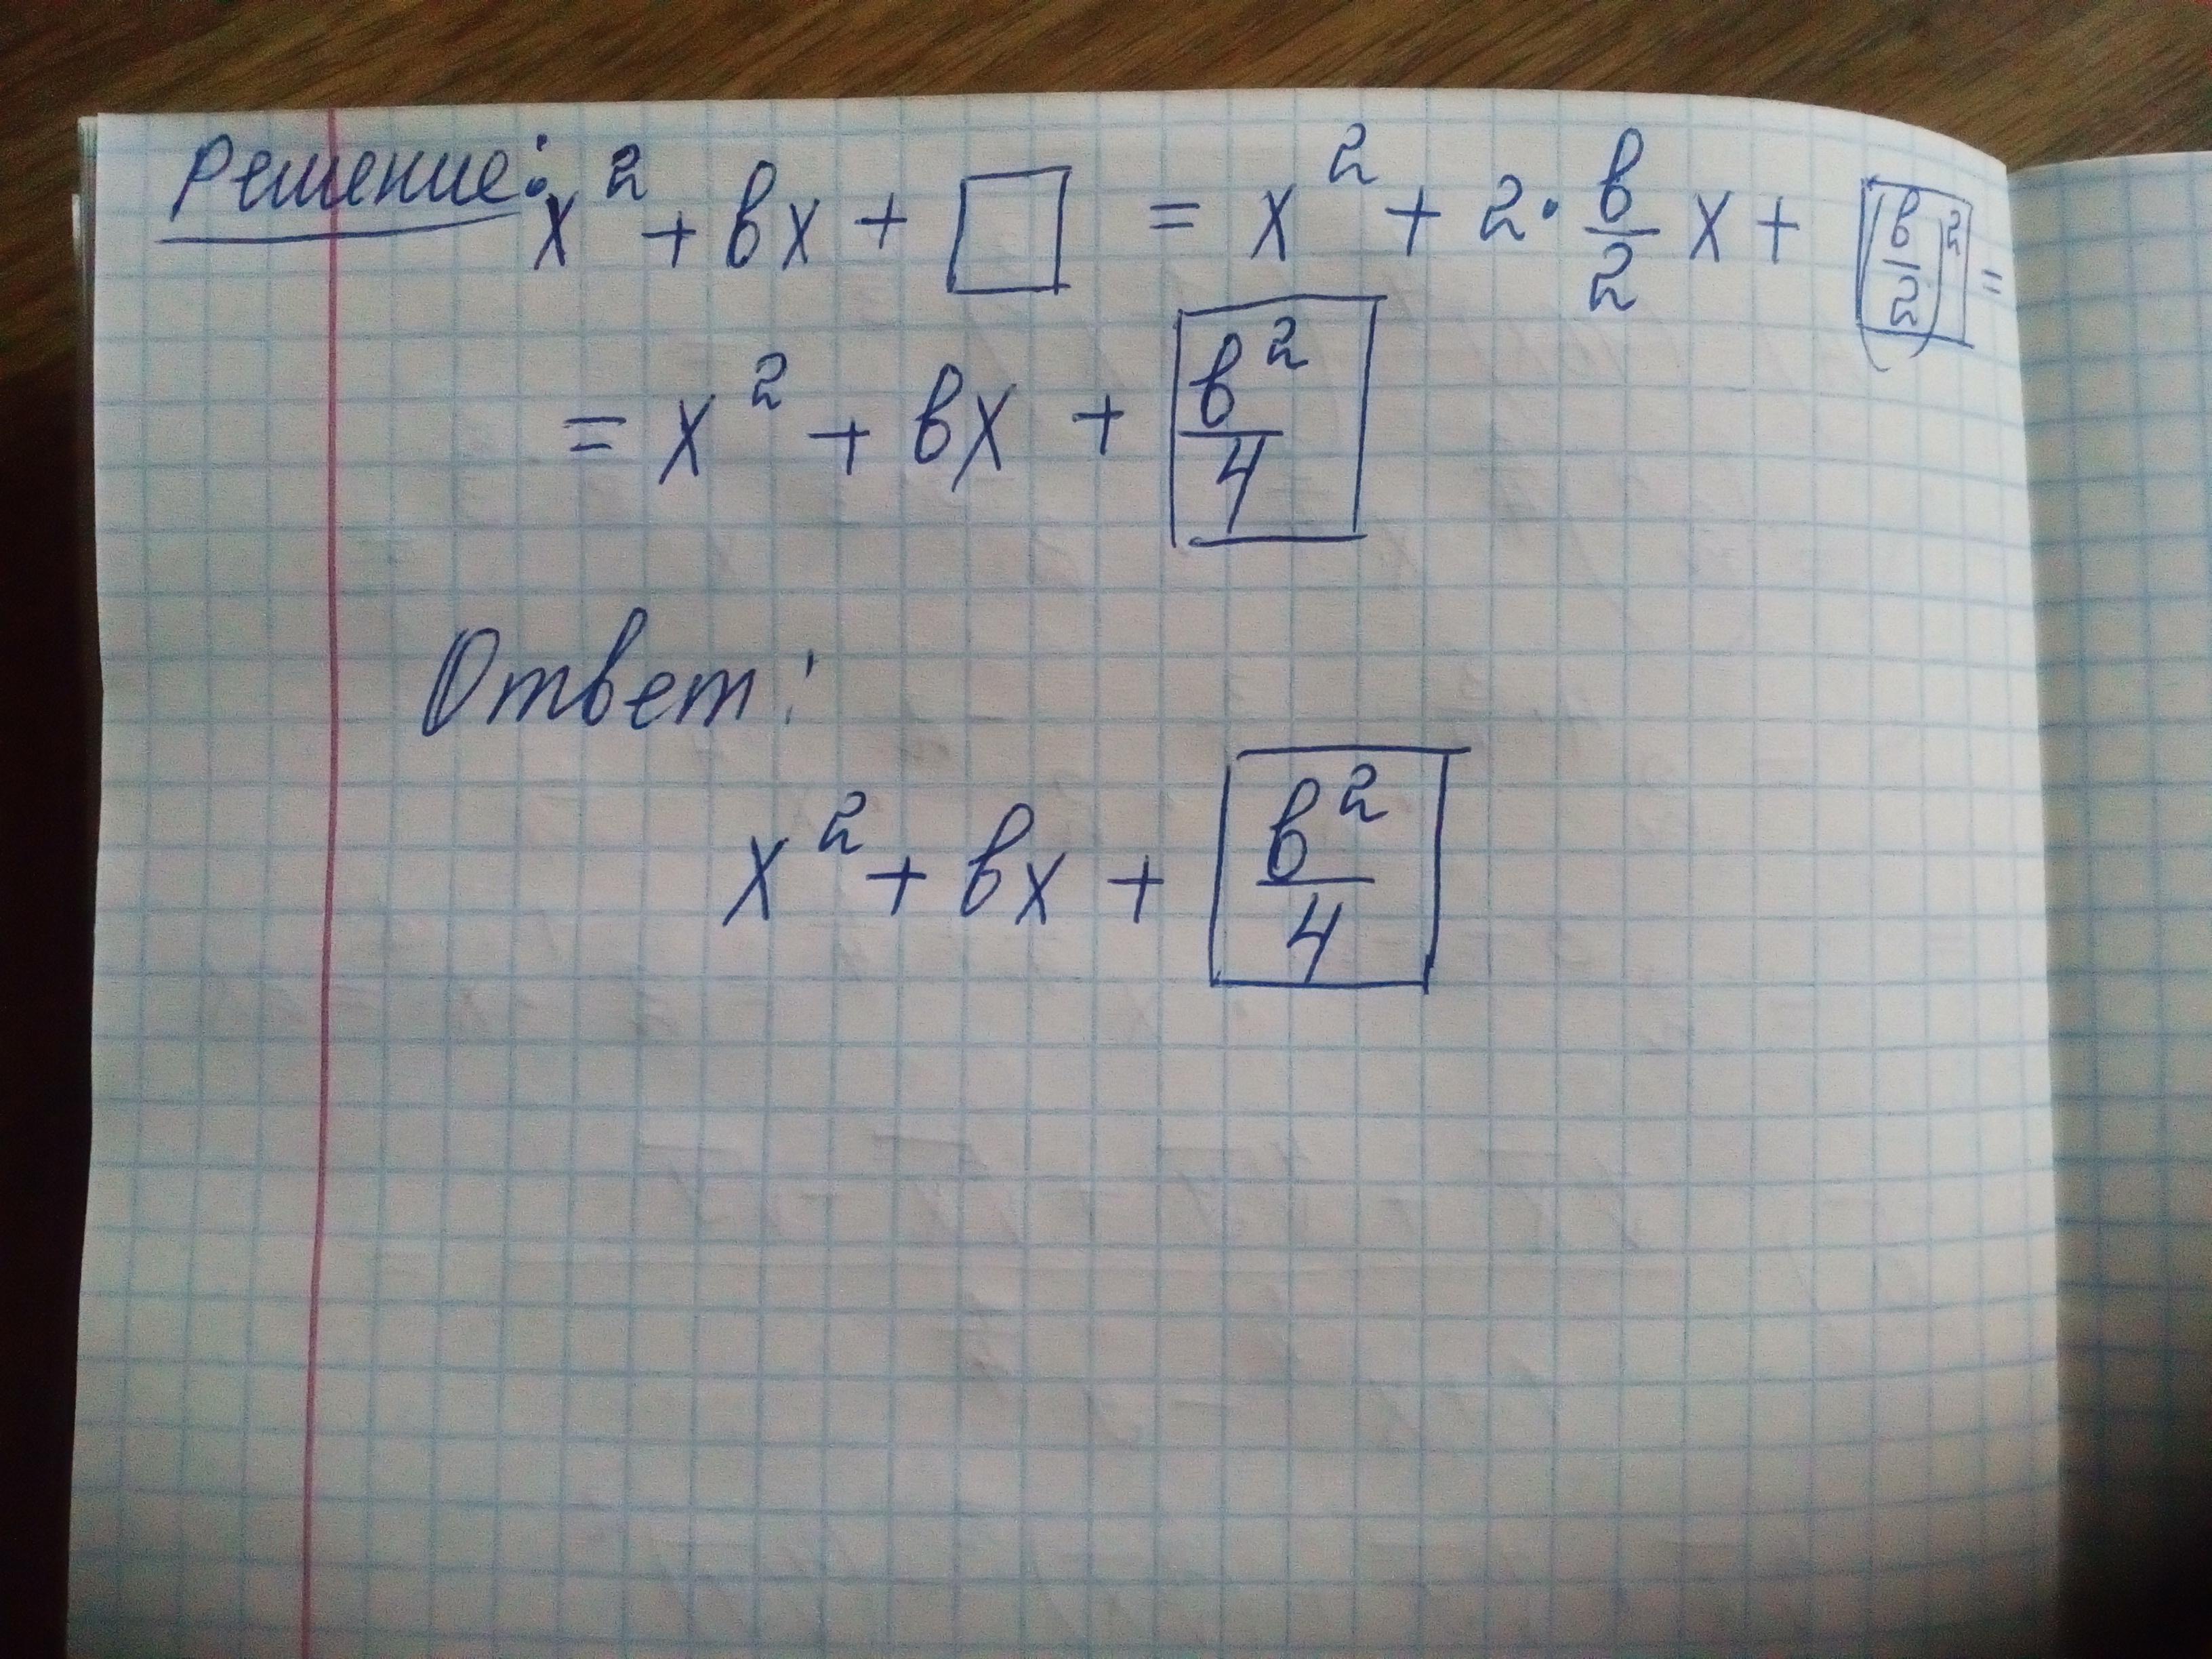 Решение: x² + вx + □ = x² + 2 · в/2 x + (в/2)² =
= x² + вx + в²/4
Ответ:
x² + вx + в²/4